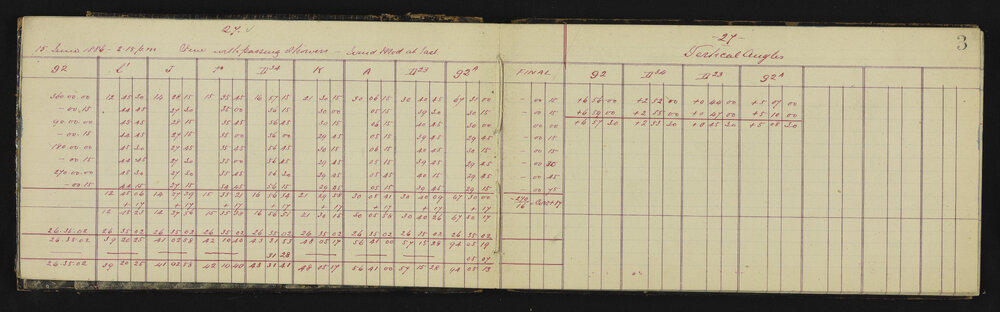 27. v
15 June 1886 - 2.15 p.m Fine with passing showers - Wind Mod at East
92 L' J II24 K A II23 92A FINAL
360.00.00 12 45 30 14 28 15 15 35 45 16 57 15 21 30 15 30 06 15 30 40 45 67 31 00 - 00 15
- 00.15 44 45 27 30 35 00 36 15 30 00 05 15 39 30 30 15 - 00 15
90.00.00 45 45 28 15 35 45 56 45 30 15 06 15 40 45 30 45 00 00
- 00.15 44 45 27 15 35 00 36 00 29 45 05 15 39 45 29 45 - 00 15
180.00.00 45 30 27 45 35 15 56 45 30 15 06 15 40 30 30 15 - 00 15
- 00 15 44 45 27 30 35 00 56 45 29 45 05 15 39 45 29 45 - 00 30
270.00.00 45 30 27 30 35 45 56 30 29 45 05 15 40 15 29 45 - 00 45
- 00.15 44 15 27 15 34 45 56 15 29 25 05 15 39 45 29 15 - 00 45
12 45 06 14 27 39 15 35 21 16 56 34 21 29 58 30 05 41 30 40 09 67 30 00
+ 17 + 17 + 17 + 17 + 17 + 17 + 17 + 17
12 45 23 14 27 56 15 35 38 16 56 51 21 30 15 30 05 58 30 40 26 67 30 17
26.35.02 26 35.02 26 35 02 26 35.02 26 35 02 26 35 02 26 35 02 26 35 02 26 35 02
26.35.02 39 20 25 41 02 58 42 10 40 43 31 53 48 05 17 56 41 00 57 15 28 94 05 19
31 28 05 07
26.35.02 39 20 25 41 02 58 42 10 40 43 31 41 48 05 17 56 41 00 57 15 28 94 05 13
- 27 -
3
Vertical Angles
92 II24 II23 92A
+6 56 00 +2 52 00 +0 44 00 +5 07 00
+6 59 00 +2 55 00 +0 47 00 +5 10 00
+6 57 30 +2 53 30 +0 45 30 +5 08 30